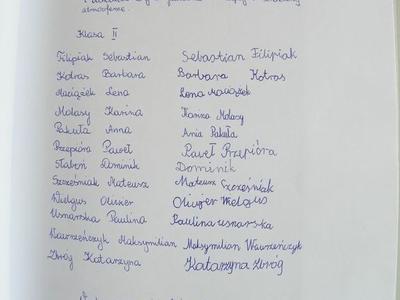 atmosferę.
Klasa II
Filipiak Sebastian Sebastian Filipiak
Kotras Barbara Barbara Kotras
Maciążek Lena Lena Maciążek
Molasy Karina Karina Molasy
Pakuła Anna Ania Pakuła
Przepióra Paweł Paweł Przepióra
Dominik Dominik
Szcześniak Mateusz Mateusz Szcześniak
Wielgus Oliwier Oliwjer Wielgus
Usnarska Paulina Paulina usnarska
Wawrzeńczyk Maksymilian Maksymilian Wawrzeńczyk
Zbróg Katarzyna Katarzyna Zbróg